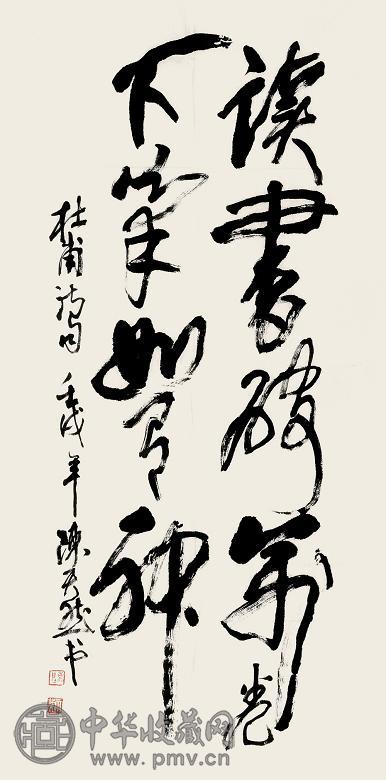 读书破万卷
下笔如有神
杜甫诗句 壬戌年 陈天然书
中华收藏网
www.pmv.cn